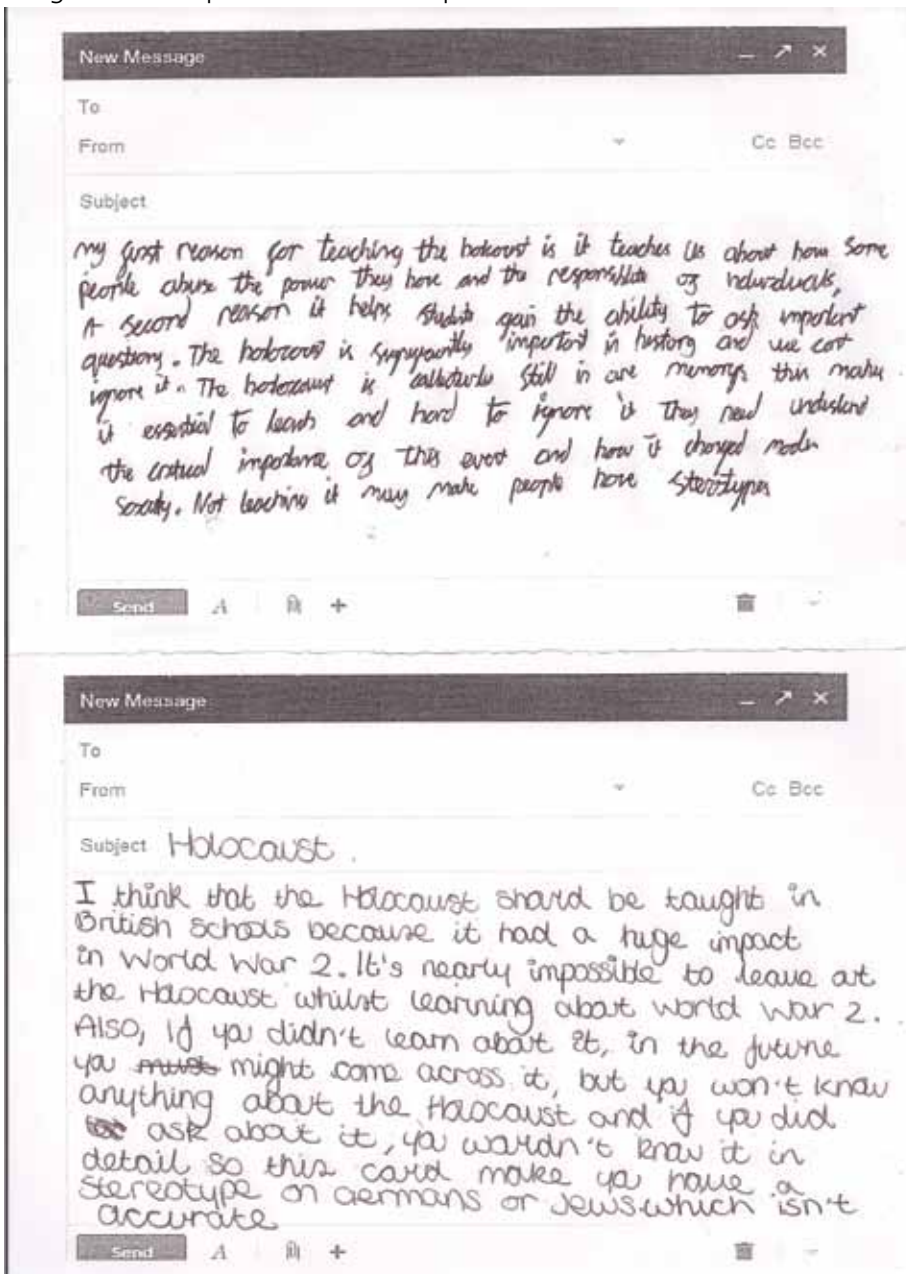 New Message
To
From Cc Bcc
Subject
my first reason for teaching the holocoust is it teaches us about how some
people abuse the power they have and the responsibilite of induviduals,
A second reason it helps students gain the ability to ask important
questions. The holocoust is important in history and we cant
ignore it. The holocaust is still in are memorys this makes
it essential to learn and hard to ignore it they need understand
the importance of this event and how it changed modern
Socaity. Not teaching it may make people have sterotypes
Send A +
New Message
To
From Cc Bcc
Subject Holocaust.
I think that the Holocaust should be taught in
British Schools because it had a huge impact
in World War 2. It's nearly impossible to leave out
the Holocaust whilst learning about world war 2.
Also, if you didn't learn about it, in the future
you must might come across it, but you won't know
anything about the Holocaust and if you did
ask about it, you wouldn't know it in
detail so this could make you have a
stereotype on Germans or Jews which isn't
accurate
Send A +